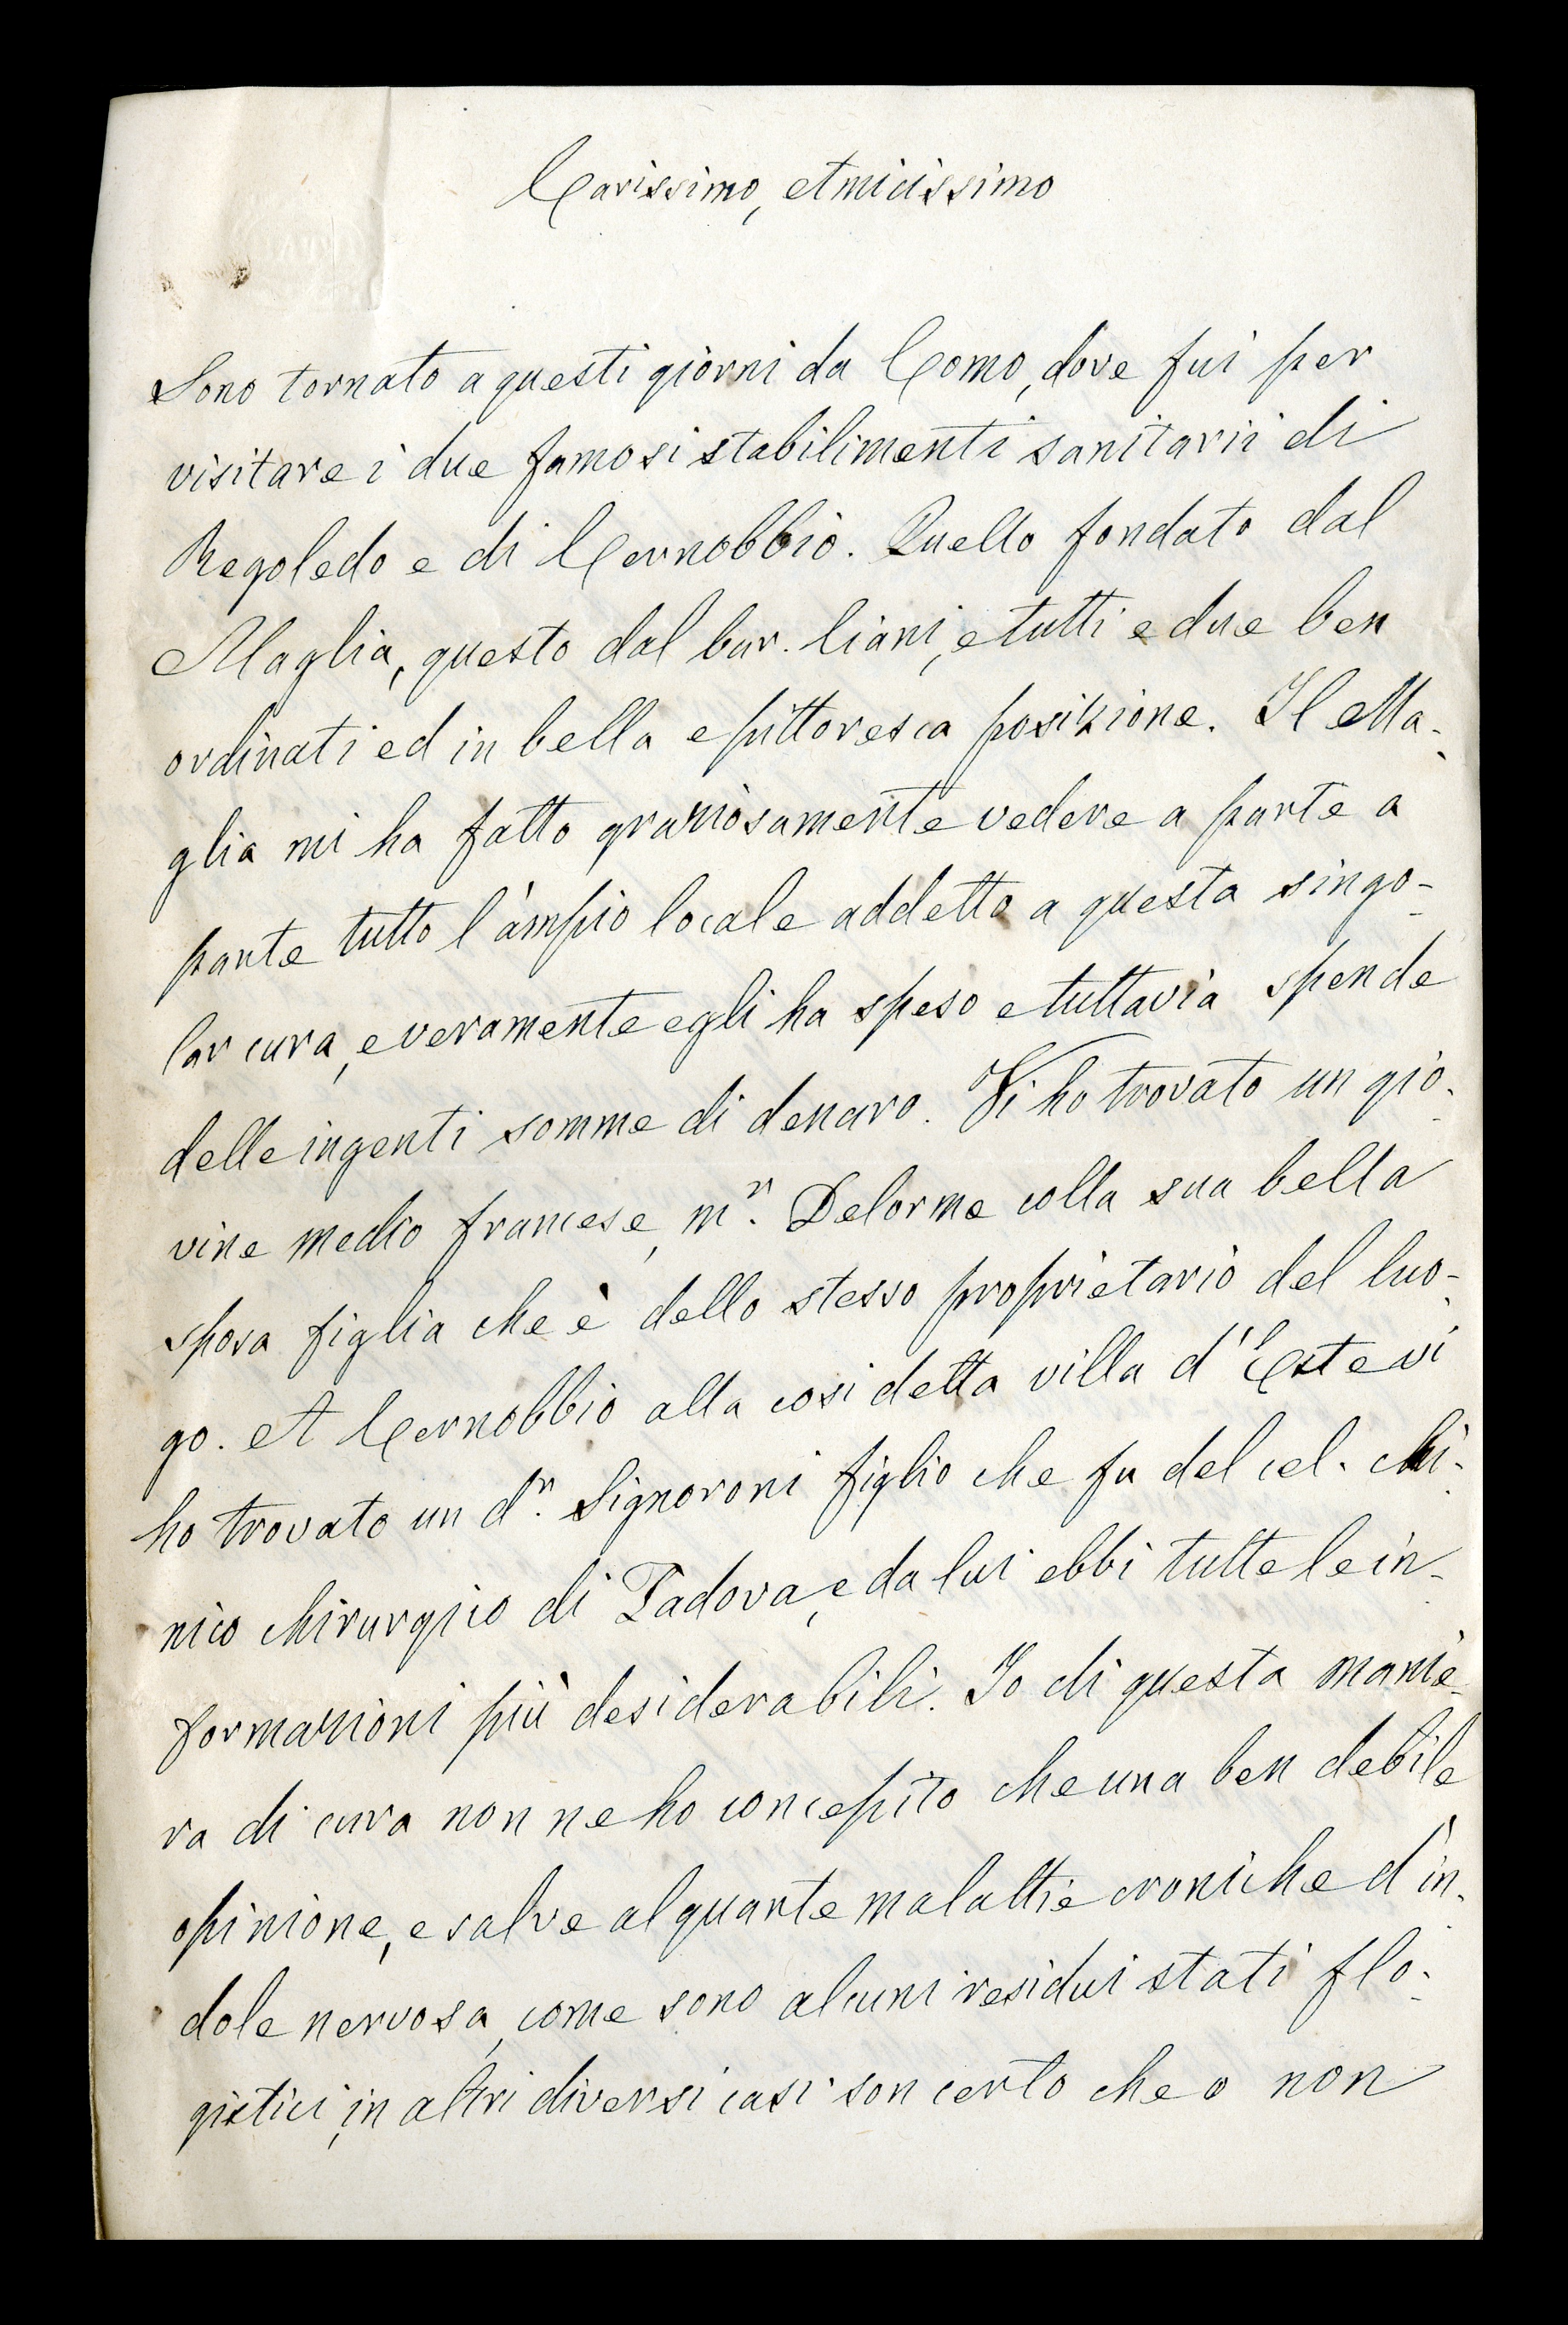 Carissimo, Amicissimo
Sono tornato a questi giorni da Como, dove fui per
visitare i due famosi stabilimenti sanitarii di
Regoledo e di Cernobbio. Quello fondato dal
Maglia, questo dal bar. Ciani, e tutti e due ben
ordinati ed in bella e pittoresca posizione. Il Ma-
glia mi ha fatto graziosamente vedere a parte a
parte tutto l'ampio locale addetto a questa singo-
lar cura, e veramente egli ha speso e tuttavia spende
delle ingenti somme di denaro. Vi ho trovato un gio-
vine medico francese, mr. Delorme colla sua bella
sposa figlia che è dello stesso proprietario del luo-
go. A Cernobbio alla cosi detta villa d'Este vi
ho trovato un dr. Signoroni figlio che fu del cel. cli-
nico chirurgico di Padova, e da lui ebbi tutte le in-
formazioni più desiderabili. Io di questa manie-
ra di cura non ne ho concepito che una ben debile
opinione, e salve alquante malattie croniche d'in-
dole nervosa, come sono alcuni residui stati flo-
gistici, in altri diversi casi son certo che o non